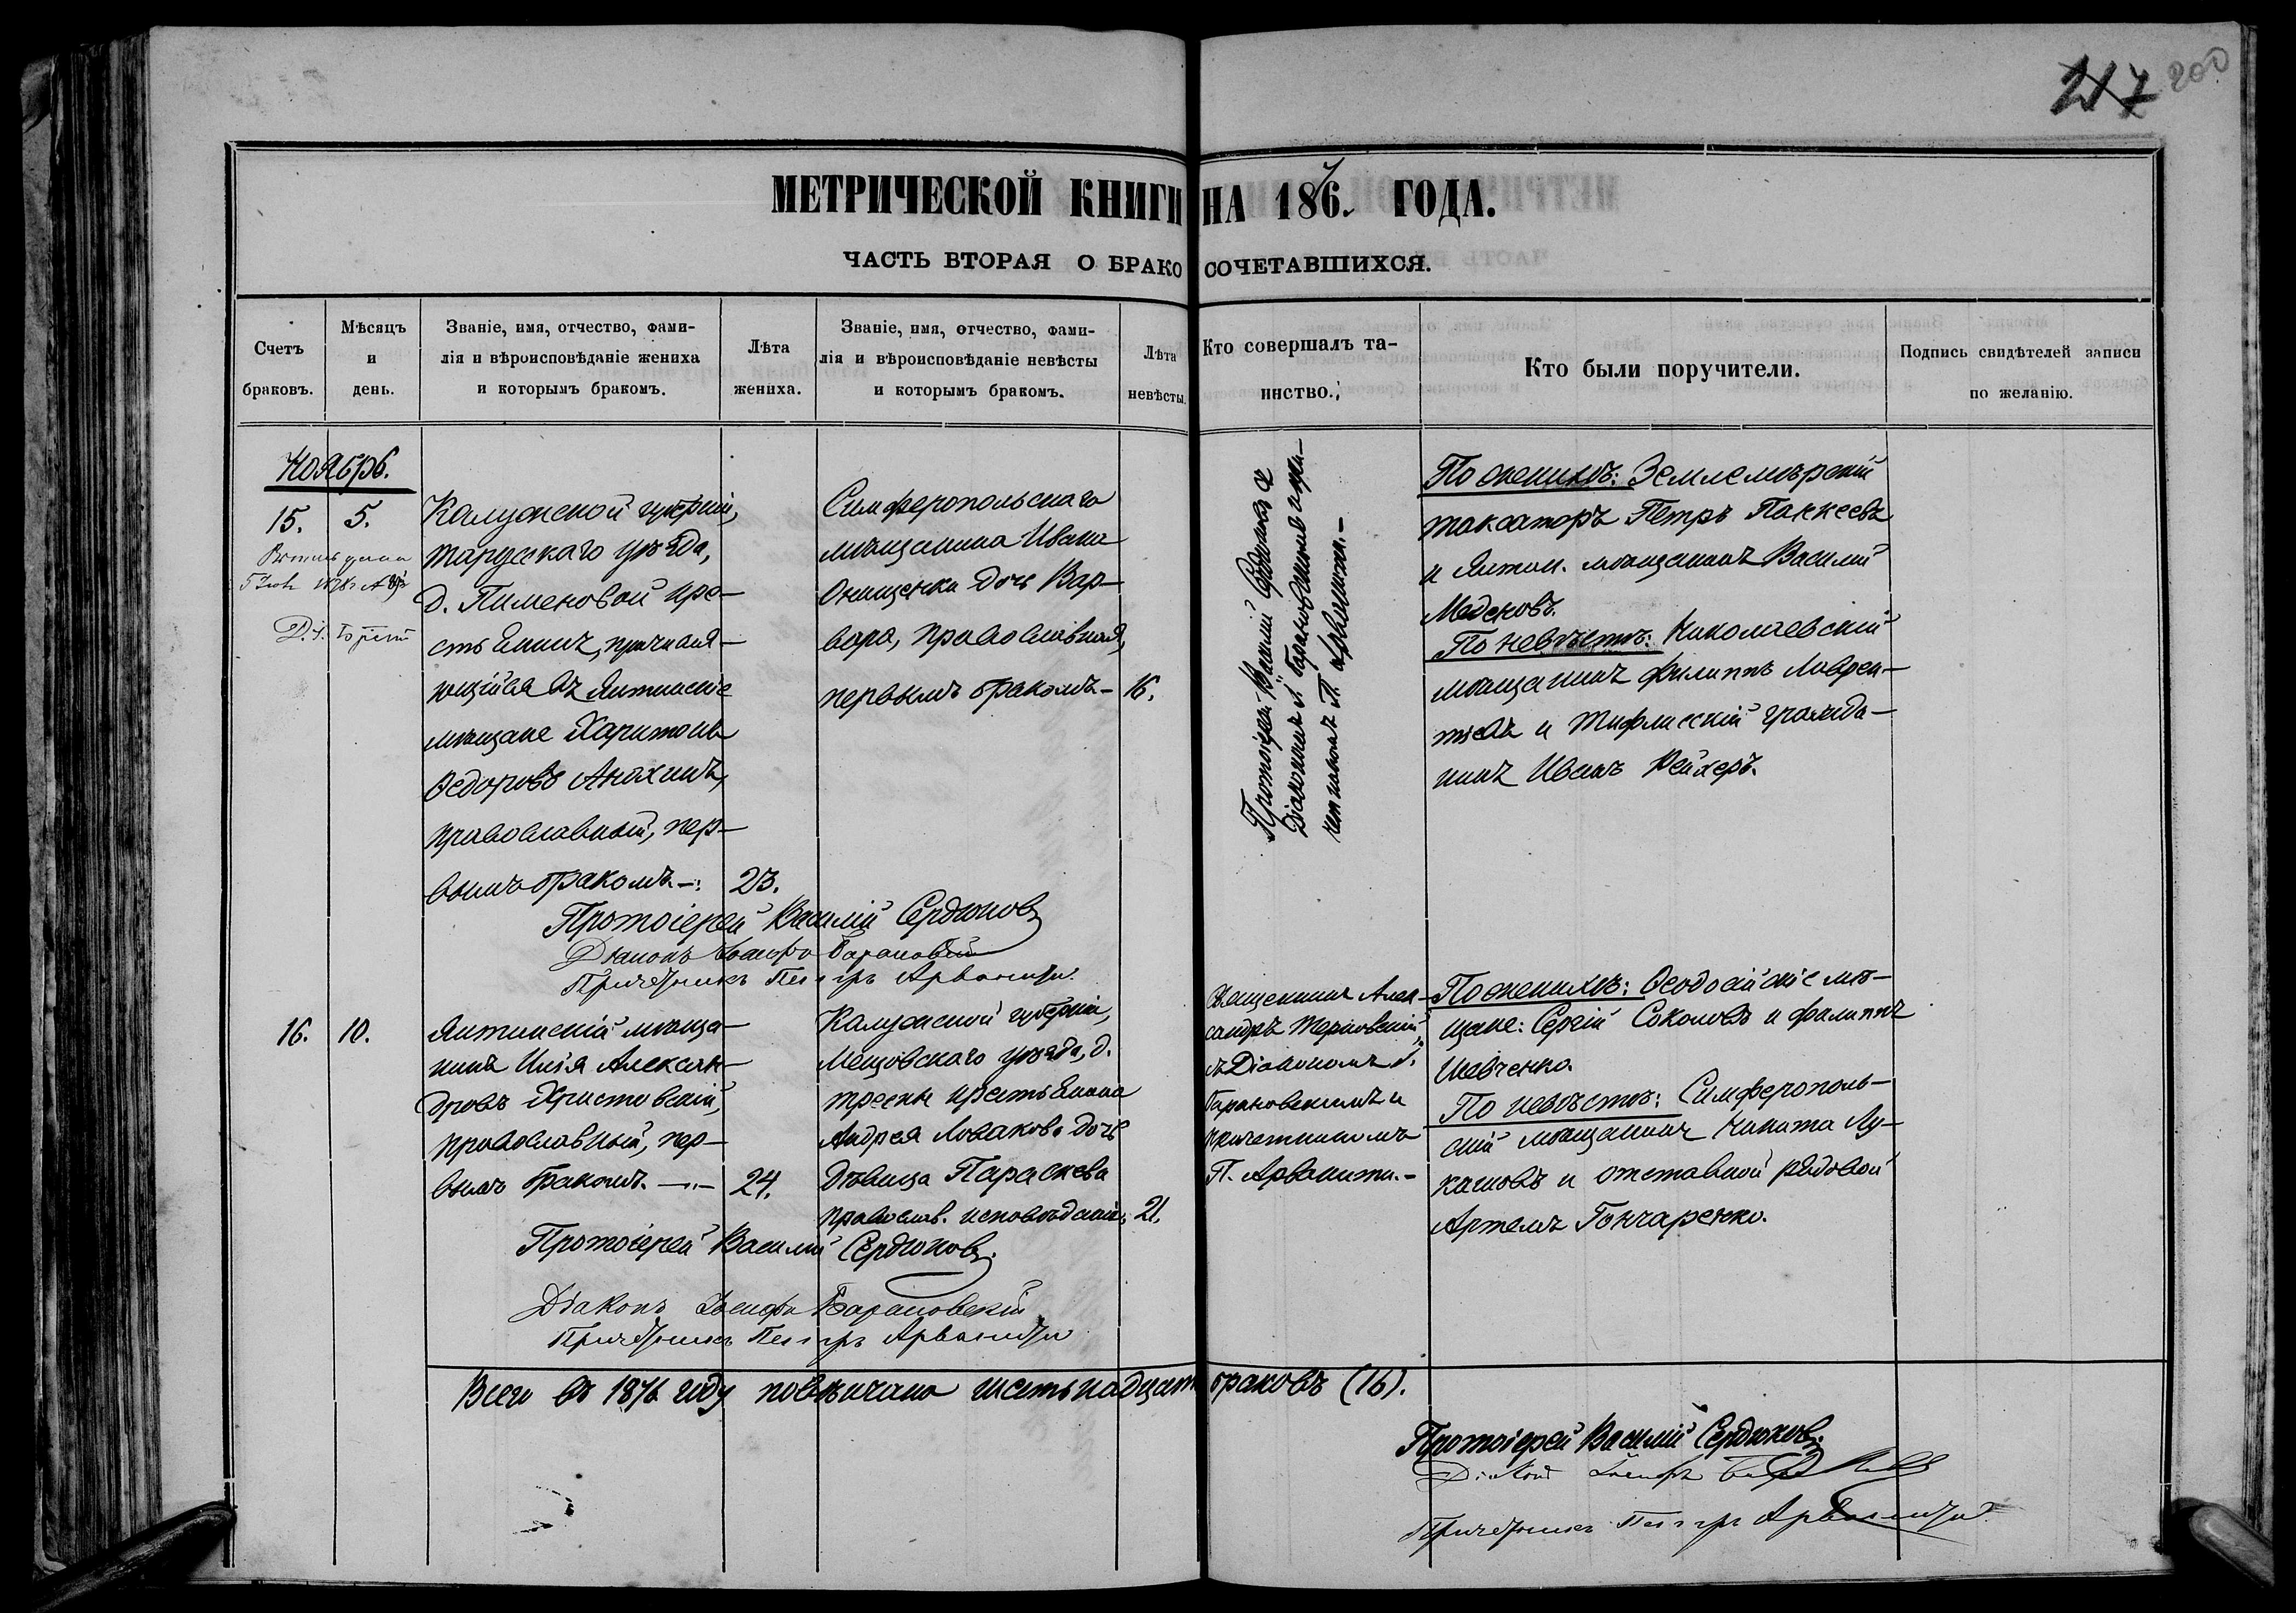 217 200
МЕТРИЧЕСКОЙ КНИГИ НА 1876. ГОДА.
ЧАСТЬ ВТОРАЯ О БРАКОСОЧЕТАВШИХСЯ.
Счетъ
браковъ.
Мѣсяцъ
и
день.
Званіе, имя, отчество, фами-
лія и вѣроисповѣданіе жениха
и которымъ бракомъ.
Лѣта
жениха.
Званіе, имя, отчество, фами-
лія и вѣроисповѣданіе невѣсты
и которымъ бракомъ.
Лѣта
невѣсты.
Кто совершалъ та-
инство.
Кто были поручители.
Подпись свидѣтелей записи
по желанію.
Ноябрь.
15. 5.
Калужской губерніи,
тарусскаго уѣзда,
д. Пименовой кре-
стьянинъ, причисля-
ющійся въ Ялтинскіе
мѣщане Харитонъ
Ѳедоровъ Анахинъ,
православный, пер-
вымъ бракомъ. 23.
Симферопольскаго
мѣщанина Ивана
Онищенки дочь Вар-
вара, православная,
первымъ бракомъ - 16.
Протоіерей Василій Сердюковъ съ
Діакономъ І. Барановскимъ и при-
четникомъ П. Арванити.
По женихѣ: Землемѣрскій
таксаторъ Петръ Паккеевъ
и Ялтин. мѣщанинъ Василій
Меденовъ.
По невѣстѣ: Николаевскій
мѣщанинъ Филиппъ Лаврен-
тьевъ и Тифлисскій гражда-
нинъ Иванъ Рейхеръ.
Протоіерей Василій Сердюковъ
Діаконъ Іосифъ Барановскій
Причетникъ Петръ Арванити.
16. 10.
Ялтинскій мѣща-
нинъ Илія Алексан-
дровъ Христовскій,
православный, пер-
вымъ бракомъ. 24.
Калужской губерніи,
Мещовскаго уѣзда, д.
крестьянина
Андрея Новакова дочь
дѣвица Параскева
православ. исповѣданія, 21.
Священникъ Алек-
сандръ Терновскій
съ Діакономъ І.
Барановскимъ и
причетникомъ
П. Арванити.
По женихѣ: Ѳеодосійскіе мѣ-
щане: Сергій Соколовъ и Филиппъ
Шевченко.
По невѣстѣ: Симферополь-
скій мѣщанинъ Никита Лу-
кашовъ и отставной рядовой
Артемъ Гончаренко.
Протоіерей Василій Сердюковъ.
Діаконъ Іосифъ Барановскій
Причетникъ Петръ Арванити
Всего въ 1876 году повѣнчано шестьнадцать браковъ (16).
Протоіерей Василій Сердюковъ.
Діаконъ Іосифъ
Причетникъ Петръ Арванити.